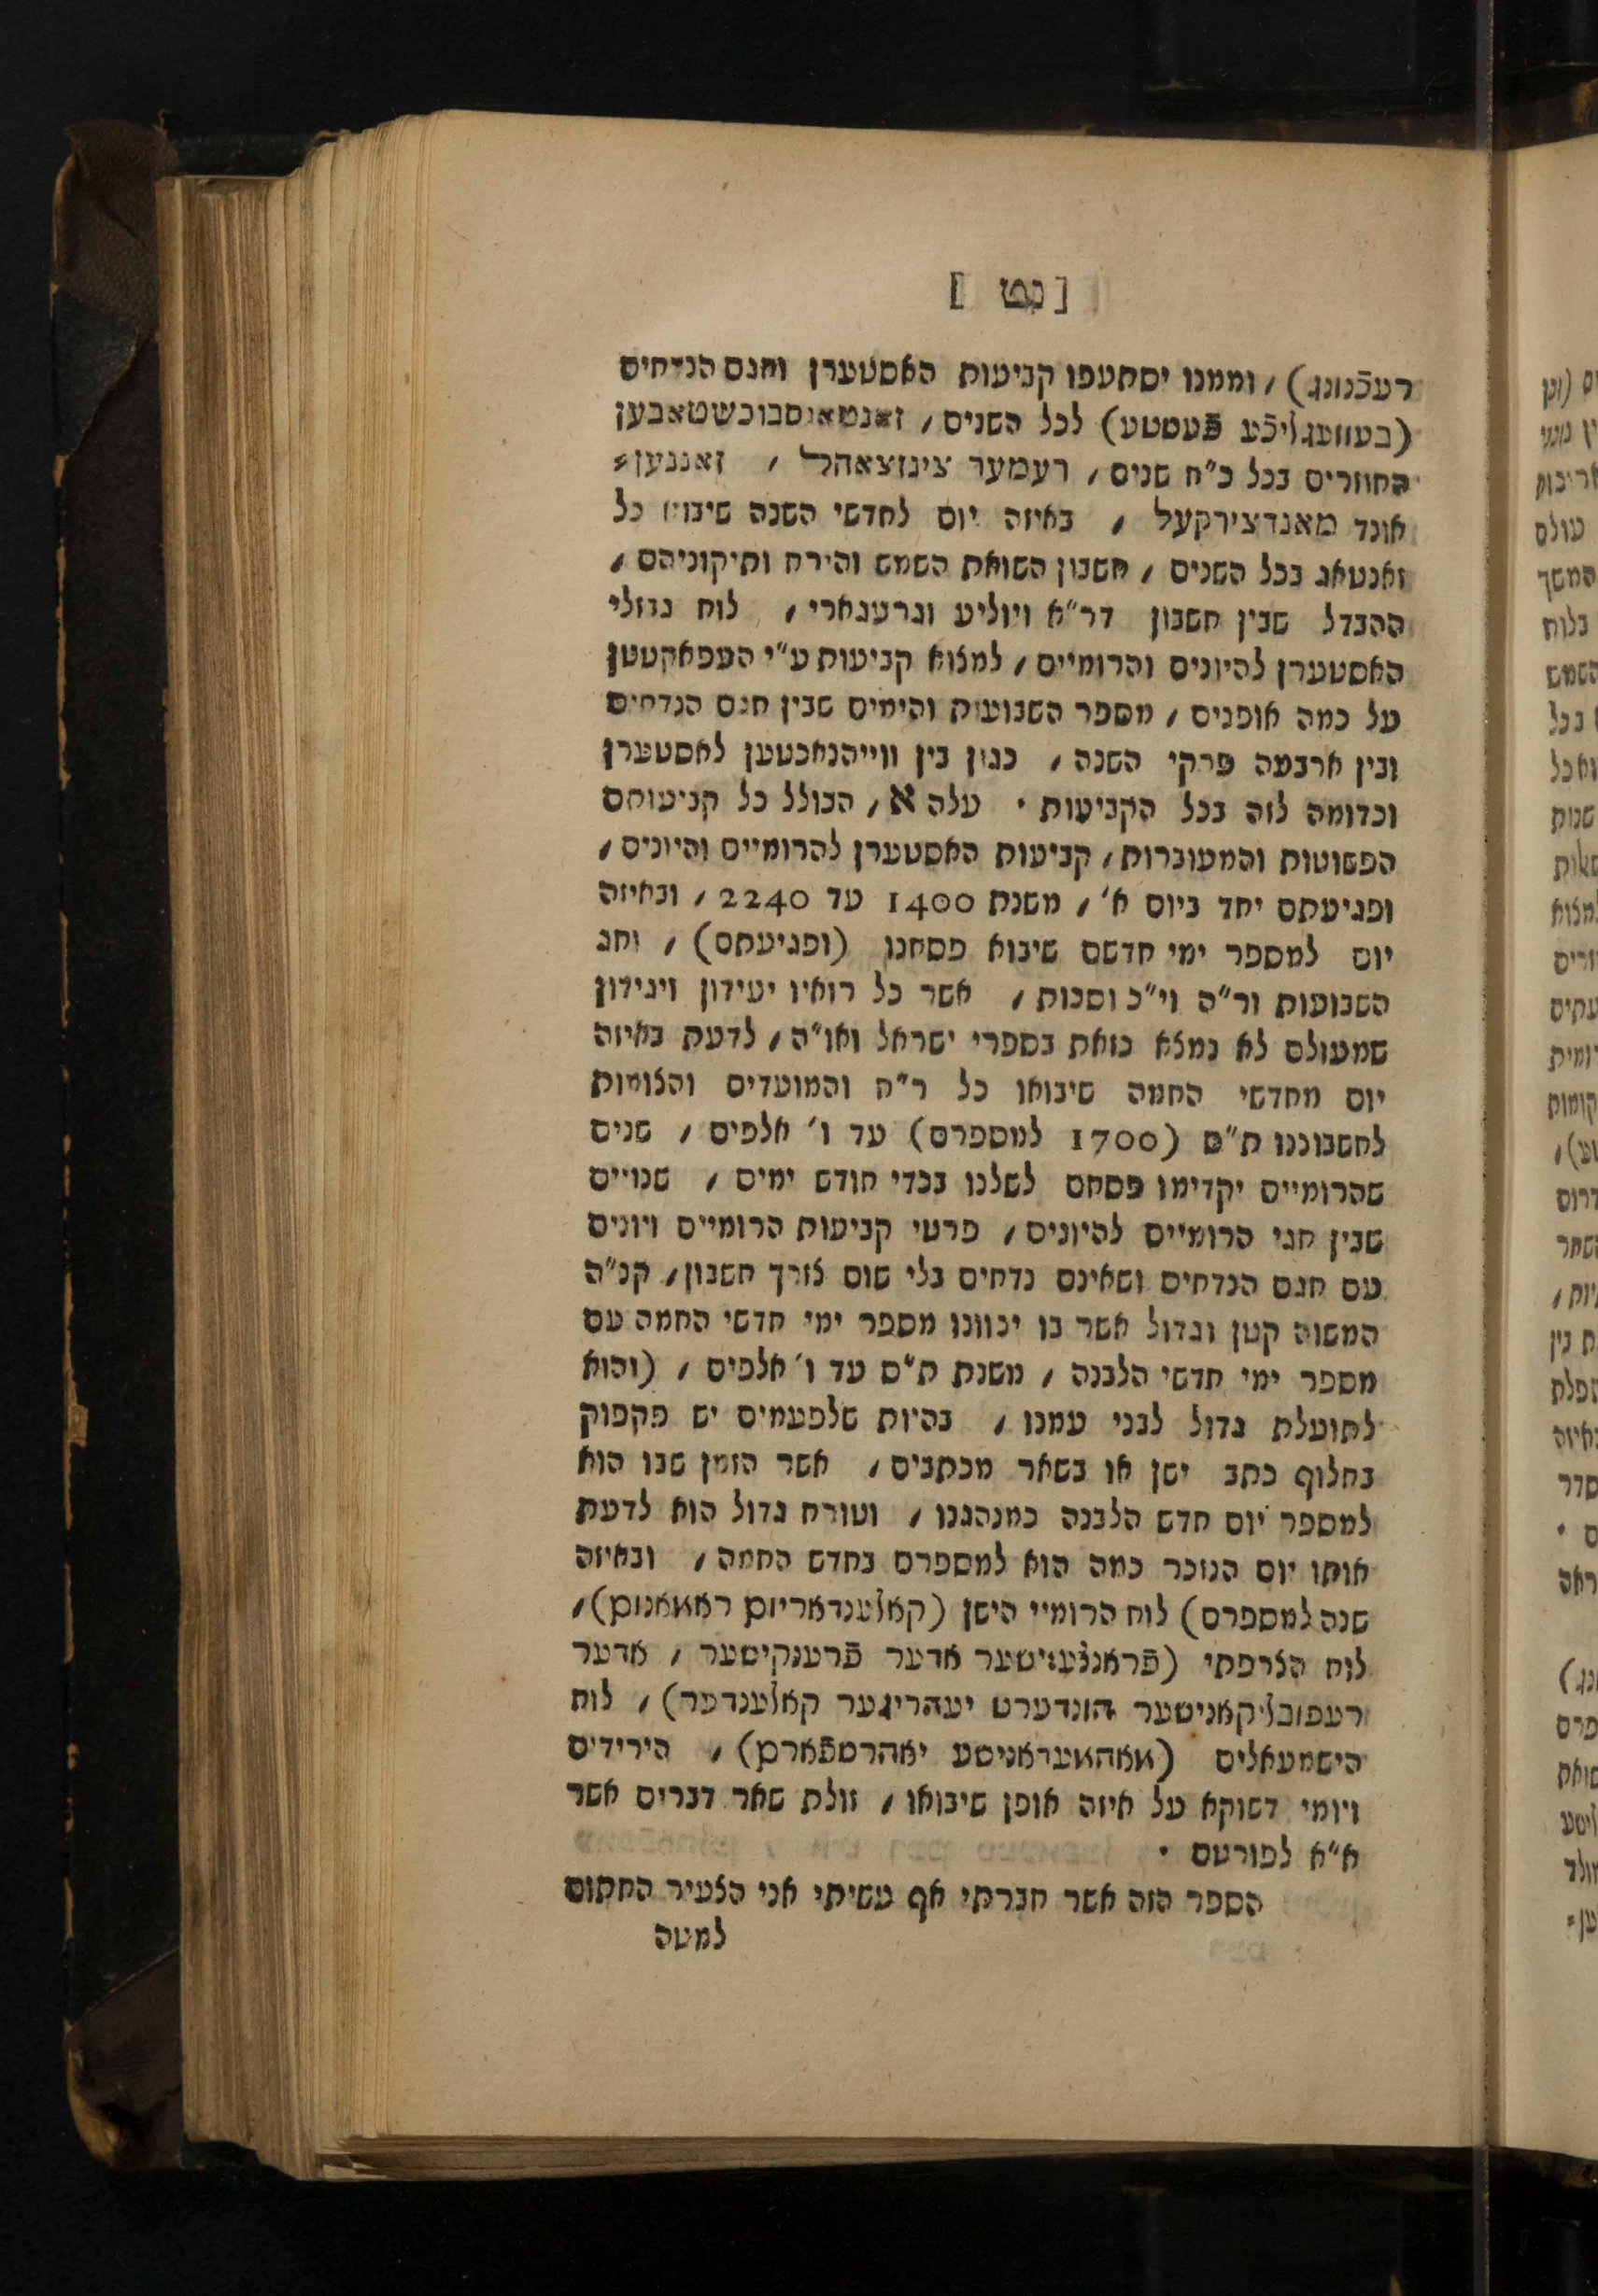 [ נט ]
רעכֿנונג) , וממנו יסתעפו קביעות האסטערן וחגם הנדחים
(בעוועגליכֿע פֿעסטע) לכל השנים , זאנטאגסבוכשטאבען
החוזרים בכל כ"ח שנים , רעמער צינזצאהל , זאננען=
אונד מאנדצירקעל , באיזה יום לחדשי השנה שיבוא כל
זאנטאג בכל השנים , חשבון השואת השמש והירח ותיקוניהם ,
ההבדל שבין חשבון דר"א ויוליע וגרעגארי , לוח גבולי
האסטערן להיונים והרומיים , למצוא קביעות ע"י העפאקטטן
על כמה אופנים , מספר השבועות והימים שבין חגם הנדחים
ובין ארבעה פרקי השנה , כגון בין ווייהנאכטען לאסטערן
וכדומה לזה בכל הקביעות . עלה א , הכולל כל קביעותם
הפשוטות והמעוברות , קביעות האסטערן להרומיים והיונים ,
ופגיעתם יחד ביום א' , משנת 1400 עד 2240 , ובאיזה
יום למספר ימי חדשם שיבוא פסחנו (ופגיעתם) , וחג
השבועות ור"ה וי"כ וסכות , אשר כל רואיו יעידון ויגידון
שמעולם לא נמצא כזאת בספרי ישראל ואו"ה , לדעת באיזה
יום מחדשי החמה שיבואו כל ר"ח והמועדים והצומות
לחשבוננו ת"ס (1700 למספרם) עד ו' אלפים , שנים
שהרומיים יקדימו פסחם לשלנו בכדי חודש ימים , שנויים
שבין חגי הרומיים להיונים , פרטי קביעות הרומיים ויונים
עם חגם הנדחים ושאינם נדחים בלי שום צורך חשבון , קנ"ה
המשוה קטן וגדול אשר בו יכווננו מספר ימי חדשי החמה עם
מספר ימי חדשי הלבנה , משנת ת"ס עד ו' אלפים , (והוא
לתועלת גדול לבני עמנו , בהיות שלפעמים יש פקפוק
בחלוף כתב ישן או בשאר מכתבים , אשר הזמן שבו הוא
למספר יום חדש הלבנה כמנהגנו , וטורח גדול הוא לדעת
אותו יום הנזכר כמה הוא למספרם בחדש החמה , ובאיזה
שנה למספרם) לוח הרומיי הישן (קאלענדאריוס ראמאנוס) ,
לוח הצרפתי (פֿראנצעזישער אדער פֿרענקישער , אדער
רעפובליקאנישער הונדערט יעהריגער קאלענדער) , לוח
הישמעאלים (מאהאמעדאנישע יאהרספֿארם) , הירידים
ויומי דשוקא על איזה אופן שיבואו , זולת שאר דברים אשר
א"א לפורטם .
הספר הזה אשר חברתי אף עשיתי אני הצעיר החתום
למטה